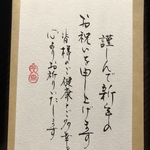 謹んで新年の
お祝いを申し上げます
皆様のご健康とご多幸を
心よりお祈りいたします